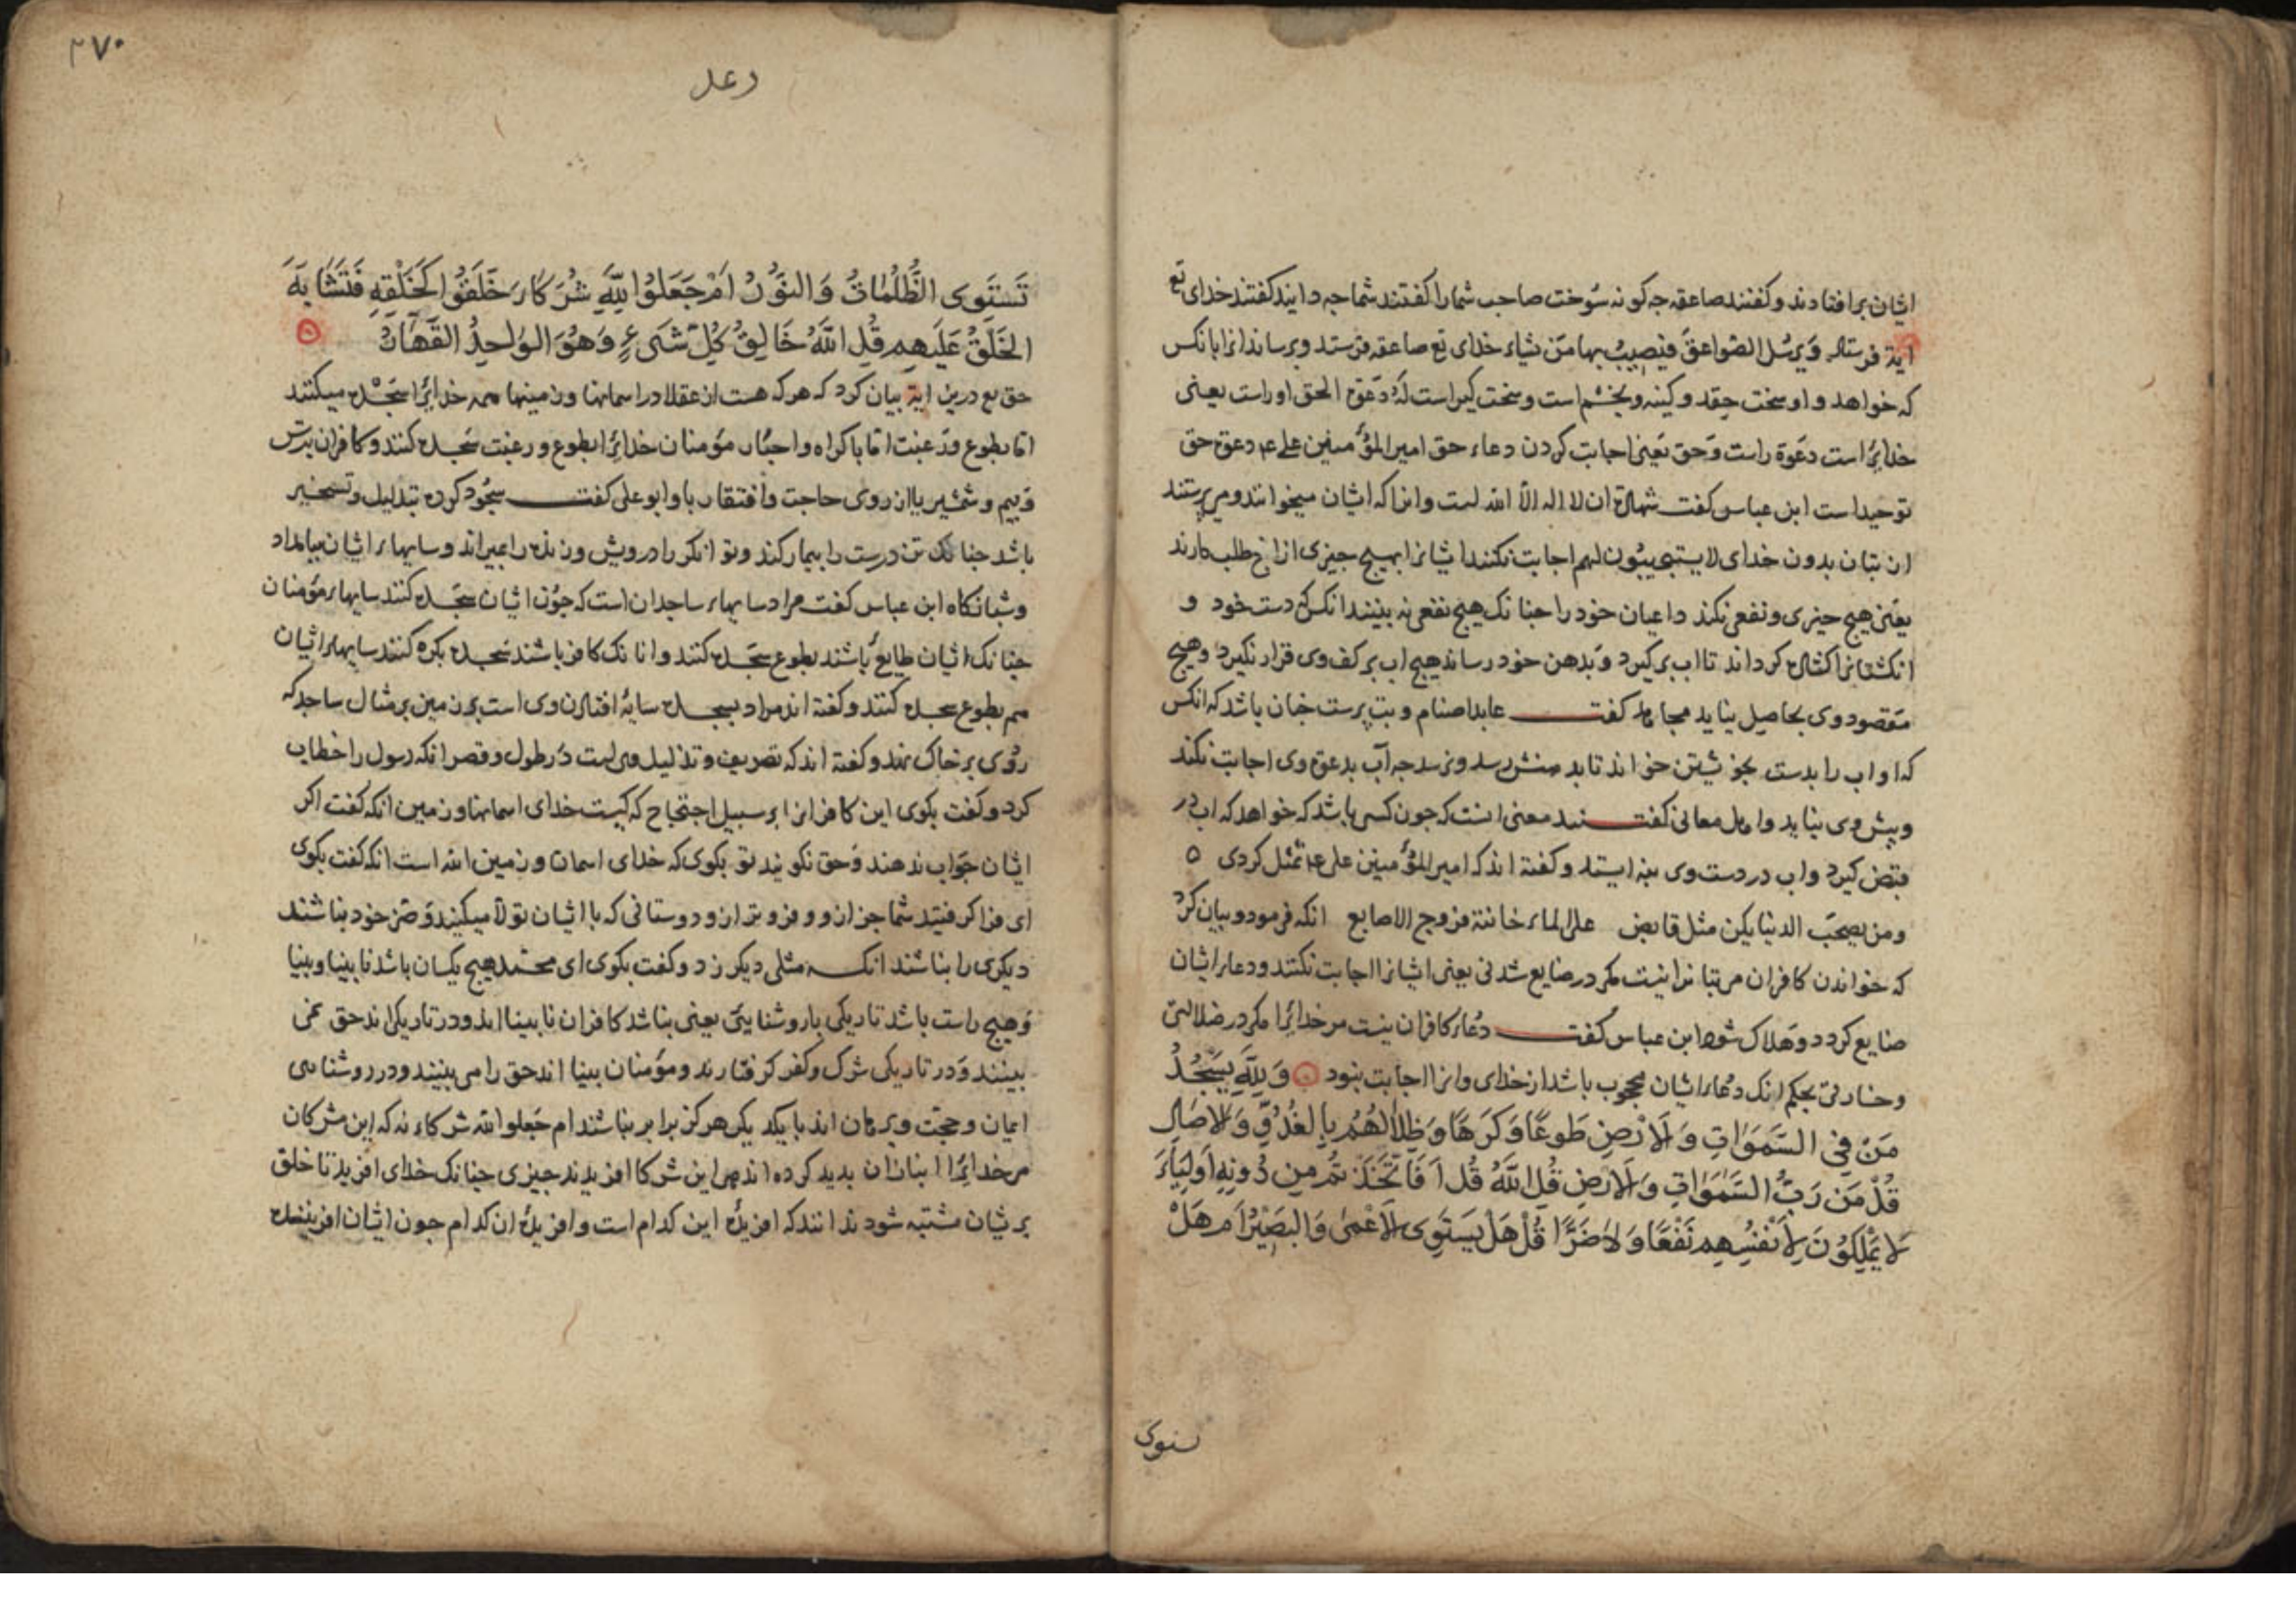 ایشان برافتادند و کفتند صاعقه جه کونه سوخت صاحب شما را کفتند شما جه دانید کفتند خدای تع
ایة فرستاد وَیرسُل الصّواعقَ فیُصیبُ بها مَن یشاء خدای تع صاعقه فرستد و برساند انرا بانکس
که خواهد و او سخت حِقد و کینه و بخشم است و سخت کیر است لهُ دَعوة الحق او راست یعنی
خدایرا است دعَوة راست وَحق یَعنی اجابت کردن دعاء حق امیر المؤمنین علی ع م دعوة حق
توحید است ابن عباس کفت شهادة ان لا اله الّا الله است و انرا که ایشان میخوانند و می پرستند
از بتان بدون خدای لایستجیبُون لهم اجابت نکنند ایشانرا بهیج جیزی از انج طلب دارند
یعنی هیج جیزی و نفعی نکند داعیان خود را جنانک هیج نفعی نه بینند انکس که دست خود و
انکشتانرا کشاده کرداند تا اب برکیرد وَ بدهن خود رساند هیج اب بر کف وی قرار نکیرد و هیج
مَقصود وی بحاصل نیاید مجاهد کفت عابد اصنام و بت پرست جنان باشد که انکس
که او اب را بدست بخویشتن خواند تا بدهنش رسد و نرسد جه آب بدعوة وی اجابت نکند
و پیش وی نیاید و اهل معانی کفتند معنی انست که جون کسی باشد که خواهد که اب در
قبض کیرد و اب در دست وی نیز ایستد و کفته اند که امیر المؤمنین علی ع م تمثل کردی ۵
ومن یصحب الدنیا یکن مثل قابض علی الماء خانته فروج الاصابع انکه فرمود و بیان کرد
که خواندن کافران مر بتانرا نیست مکر در ضایع شدنی یعنی ایشانرا اجابت نکنند و دعاء ایشان
ضایع کردد و هَلاک شود ابن عباس کفت دُعاء کافران نیست مر خدایرا مکر در ضلالتی
و خسارتی بحکم انک دعاء ایشان محجوب باشد از خدای و انرا اجابت نبود وَ لِلّٰهِ یَسجُدُ
مَنْ فِی السَّمَوَاتِ وَ الاَرْضِ طَوعًا وَ کَرهًا وَ ظِلاٰلُهُمْ بِالغُدُوِّ وَ الاٰصَالِ
قُلْ مَنْ رَبُّ السَّمَوٰاتِ وَ الاَرضِ قُلِ اللّٰهُ قُل اَ فَاتَّخَذتُم مِن دُونِهِ اَولِیٰاءَ
لاٰ یَمْلِکُونَ لِاَنْفُسِهِم نَفْعًا وَ لاٰ ضَرًّا قُلْ هَلْ یَستَوِی الاَعْمٰی وَ البَصِیْرُ اَم هَلْ
تستوی
۳۷۰
رعد
تَستَوِی الظُّلُمٰاتُ وَ النوُّرُ اَمْ جَعَلوُا لِلّٰهِ شُرَکٰاءَ خَلَقوُا کَخَلْقِهِ فَتَشٰابَهَ
الخَلْقُ عَلَیهِم قُلِ اللّٰهُ خَالِقُ کُلِّ شَیءٍ وَ هُوَ الوٰاحِدُ القَهّٰارُ
حق تع درین ایة بیان کرد که هر که هست از عقلا در اسمانها و زمینها همه خدایرا سَجْده میکنند
اما بطوع وَ رغبت اما باکراه و اجبار مؤمنان خدایرا بطوع و رغبت سجده کنند و کافران بترس
وَ بیم و شمشیر یا از روی حاجت و افتقار باو ابو علی کفت سجُود کرده بتذلیل و تسخیر
باشد جنانک تن درست را بیمار کند و توانکر را درویش و زنده را بمیراند و سایهاء ایشان ببامداد
و شبانکاه ابن عباس کفت مراد سایهاء ساجدان است که جون ایشان سجده کنند سایهاء مؤمنان
جنانک ایشان طایع باشند بطوع سجده کنند و انانک کافر باشند سجده بکره کنند سایهاء ایشان
هم بطوع سجده کنند و کفته اند مراد بسجده سایه افتادن وی است بر زمین بر مثال ساجد که
روی بر خاک نهد و کفته اند که تصریف و تذلیل وی است دَر طول و قصر انکه رسول را خطاب
کرد و کفت بکوی این کافرانرا بر سبیل احتجاج که کیست خدای اسمانها و زمین انکه کفت اکر
ایشان جَواب ندهند وَ حق نکویند تو بکوی که خدای اسمان و زمین الله است انکه کفت بکوی
ای فرا کرفتید شما جز از و و فروتر از و دوستانی که با ایشان تولّا میکنید وَ ضر خود نباشند
دیکری را نباشند انکه مثلی دیکر زد و کفت بکوی ای محمّد هیج یکسان باشد نابینا و بینا
وَ هیج راست باشد تاریکی با روشنایی یَعنی نباشد کافران نابینا اند و در تاریکی اند حق نمی
بینند وَ در تاریکی شرک و کفر کرفتارند و مؤمنان بینا اند حق را می بینند و در روشنایی
ایمان و حجّت و برهان اند با یکدیکر هرکز برابر نباشند ام جَعلوا لله شرکاء نه که این مشرکان
مر خدایرا انبازان پدید کرده اند و این شرکا افریدند جیزی جنانک خدای افرید تا خلق
بریشان مشتبه شود ندانند که افریده این کدام است و افریده ان کدام جون ایشان افریننده